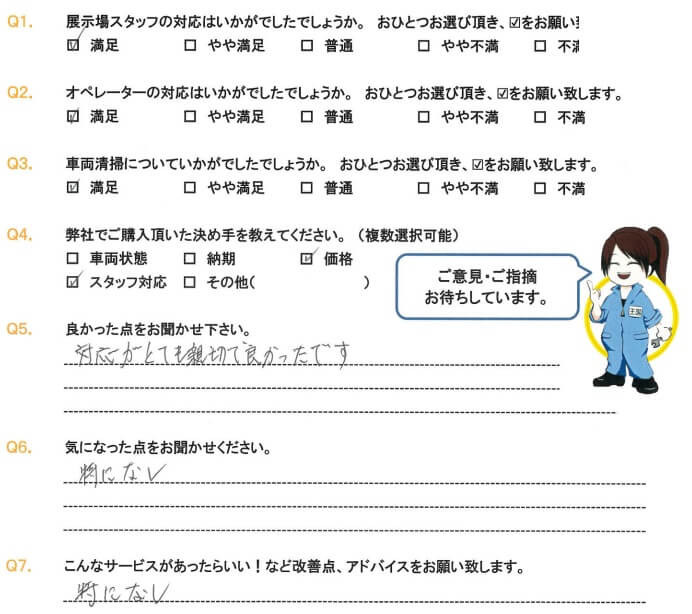 Q1. 展示場スタッフの対応はいかがでしたでしょうか。 おひとつお選び頂き、☑をお願い
☑ 満足 □ やや満足 □ 普通 □ やや不満 □ 不満
Q2. オペレーターの対応はいかがでしたでしょうか。 おひとつお選び頂き、☑をお願い致します。
☑ 満足 □ やや満足 □ 普通 □ やや不満 □ 不満
Q3. 車両清掃についていかがでしたでしょうか。 おひとつお選び頂き、☑をお願い致します。
☑ 満足 □ やや満足 □ 普通 □ やや不満 □ 不満
Q4. 弊社でご購入頂いた決め手を教えてください。(複数選択可能)
□ 車両状態 □ 納期 ☑ 価格
☑ スタッフ対応 □ その他( )
ご意見・ご指摘
お待ちしています。
Q5. 良かった点をお聞かせ下さい。
対応がとても親切で良かったです
Q6. 気になった点をお聞かせください。
特になし
Q7. こんなサービスがあったらいい!など改善点、アドバイスをお願い致します。
特になし